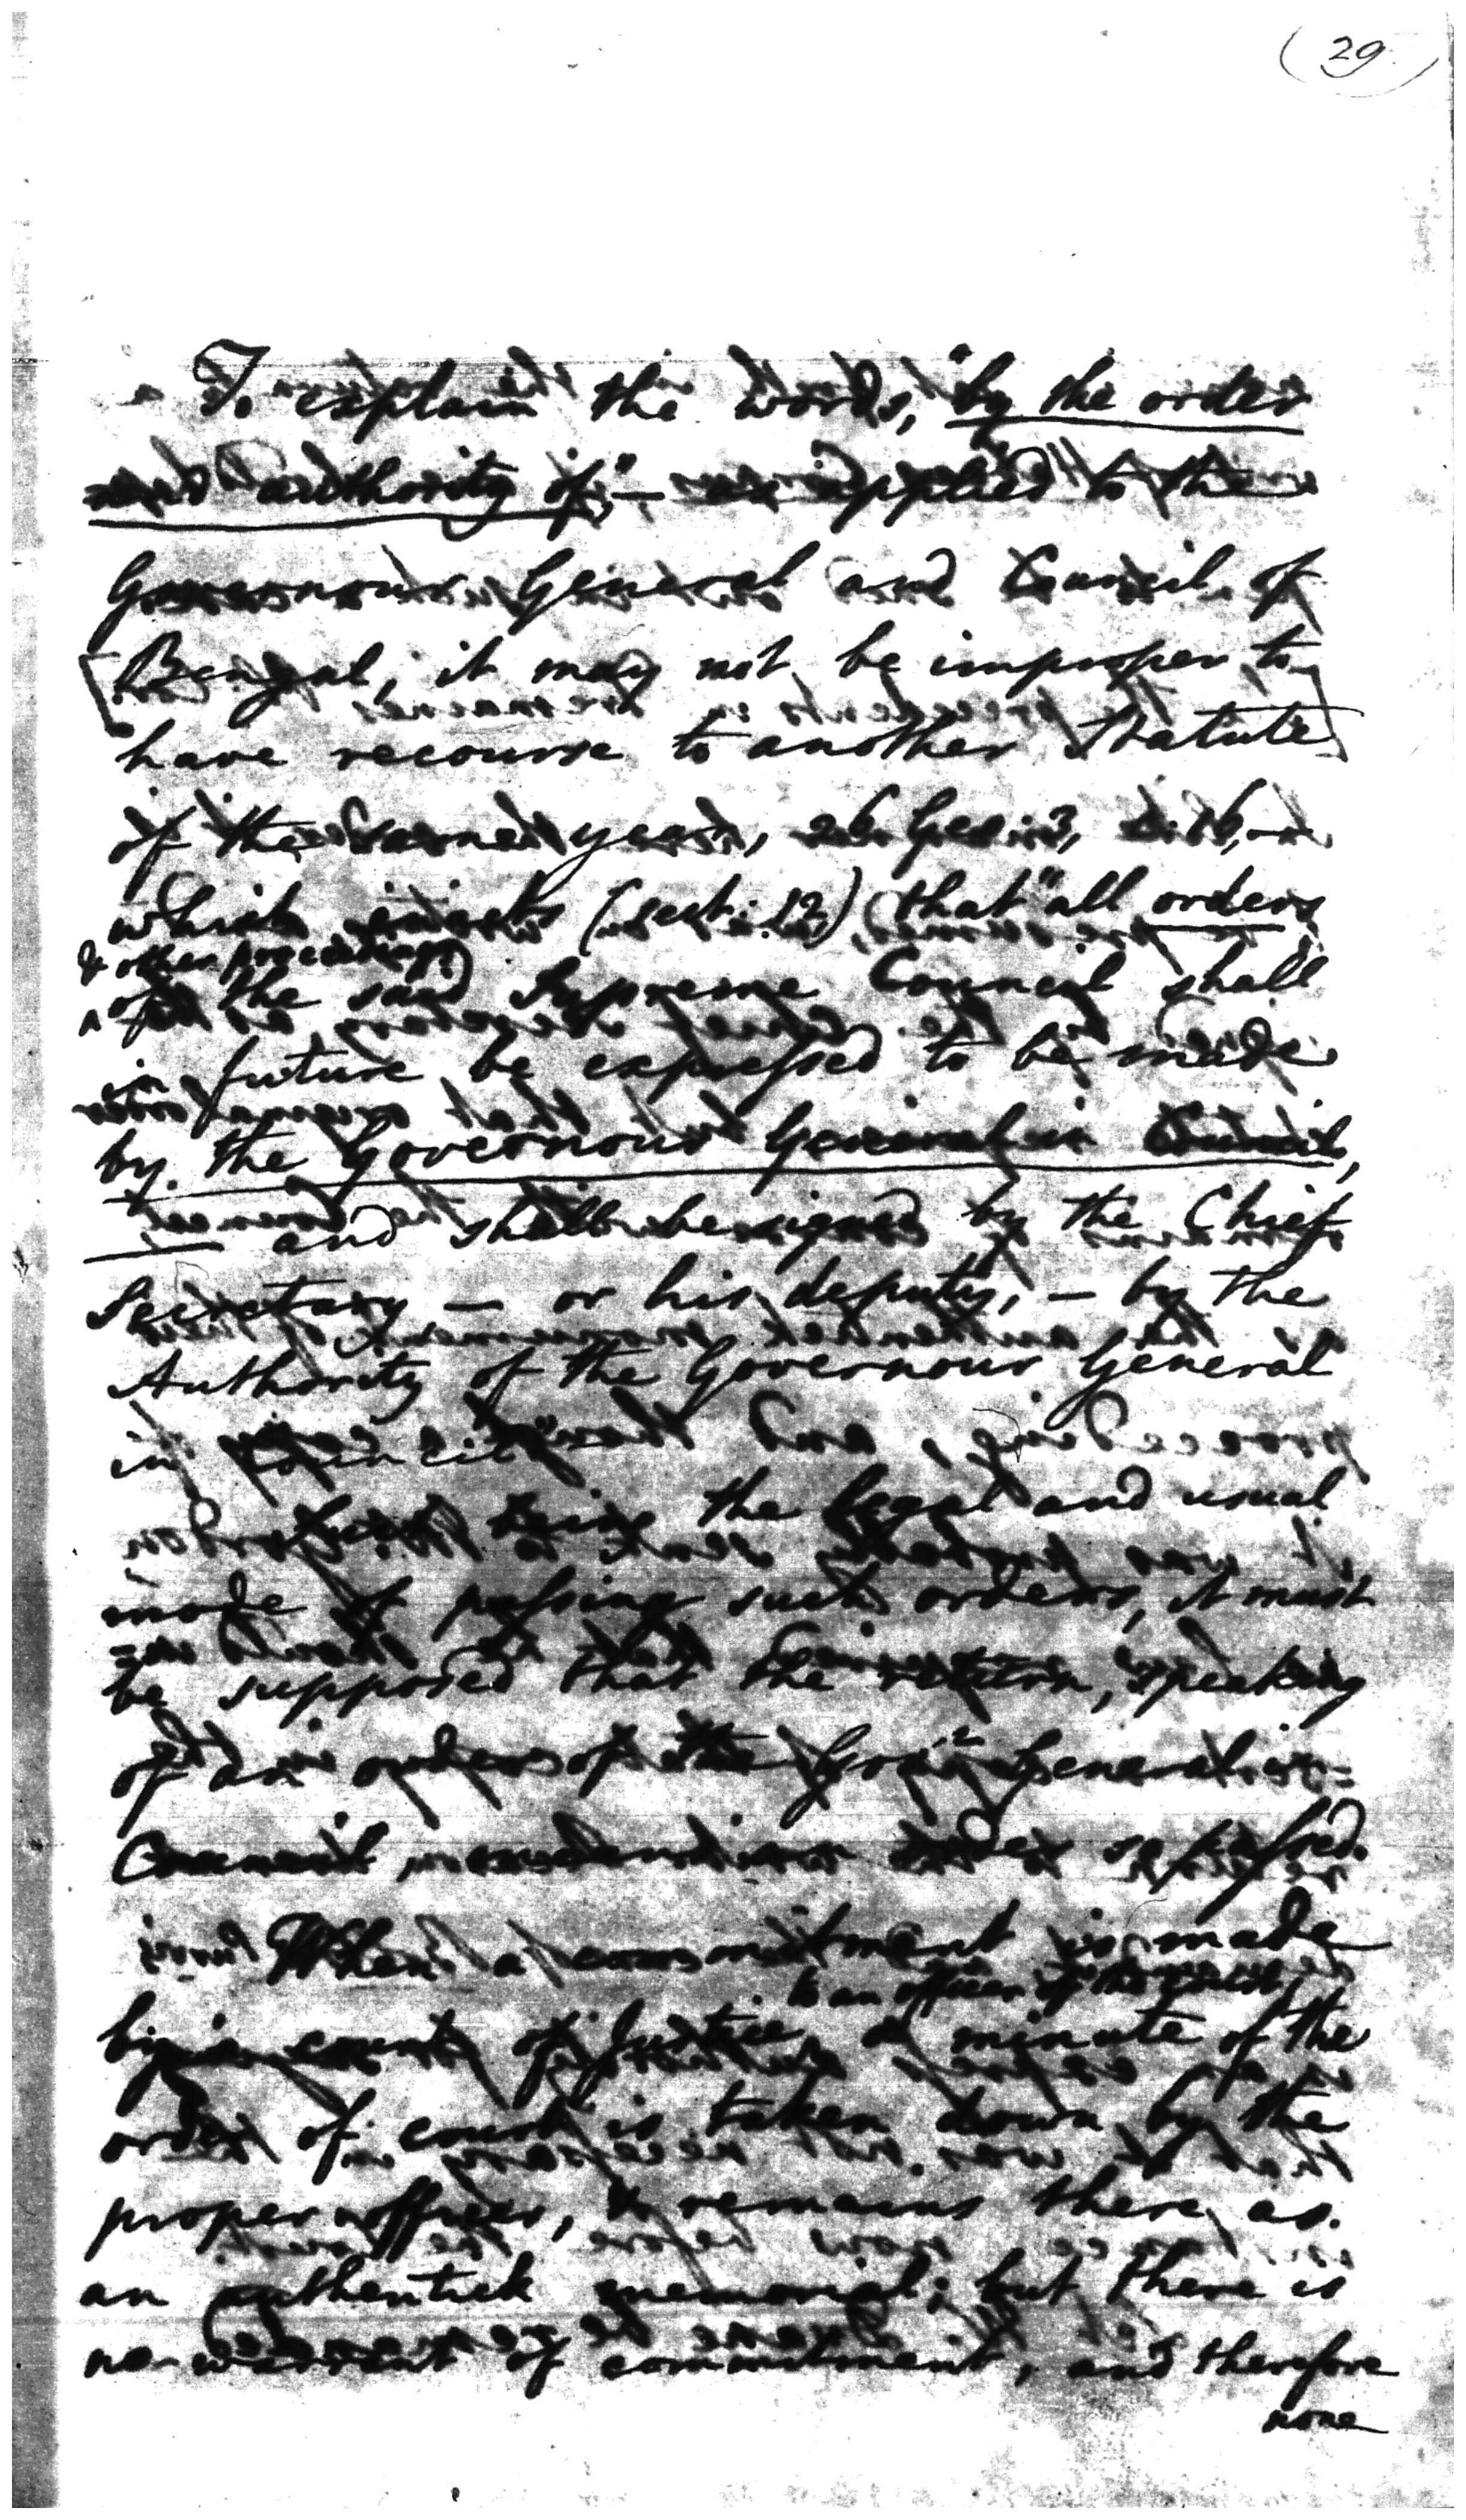 (29)
To explain the words, "by the order
and authority of," — as applied to the
Governour General and Council of
Bengal, it may not be improper to
have recourse to another Statute
of the same year, 26 Geo. 3, c. 16, —
which enacts (sect: 12) that "all orders
& other proceedings
of the said Supreme Council shall
in future be expressed to be made
by the Governour General in Council,
and shall be signed by the Chief
Secretary — or his deputy, — by the
Authority of the Governour General
in Council"
This being the legal and usual
mode of passing such orders, it must
be supposed that the return, speaking
of an order of the Govr General in
Council, means an order so passed.
When a commitment is made
to an officer of the court,
by a court of Justice, a minute of the
order of court is taken down by the
proper officer, & remains there as
an authentick memorial; but there is
no warrant of commitment, and therefore
none